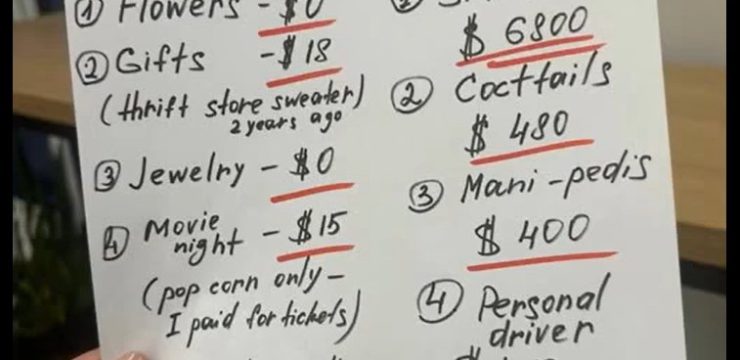 ① Flowers - $0
② Gifts - $18
(thrift store sweater)
2 years ago
③ Jewelry - $0
④ Movie
night - $15
(pop corn only -
I paid for tickets)
$ 6800
② Cocttails
$ 480
③ Mani-pedis
$ 400
④ Personal
driver